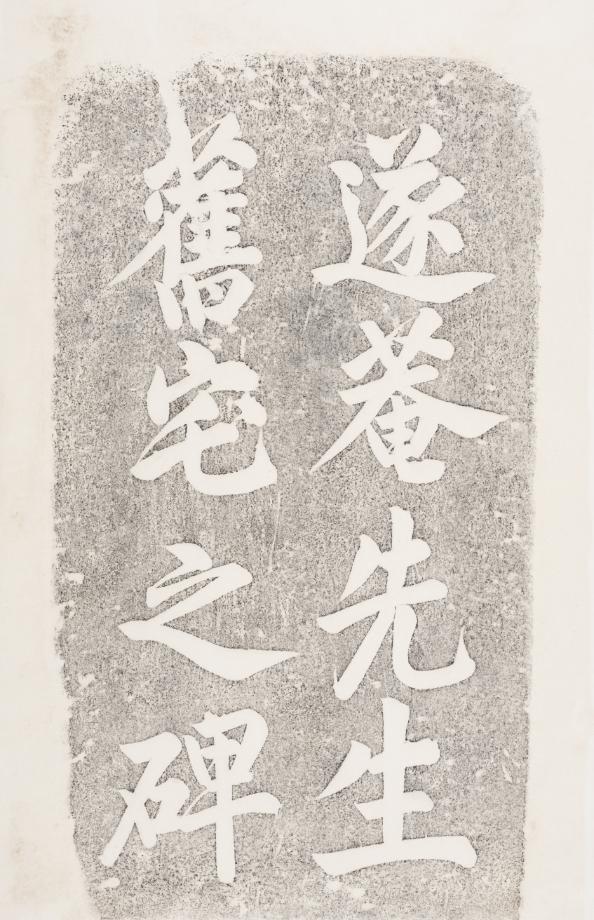 遂菴先生
舊宅之碑